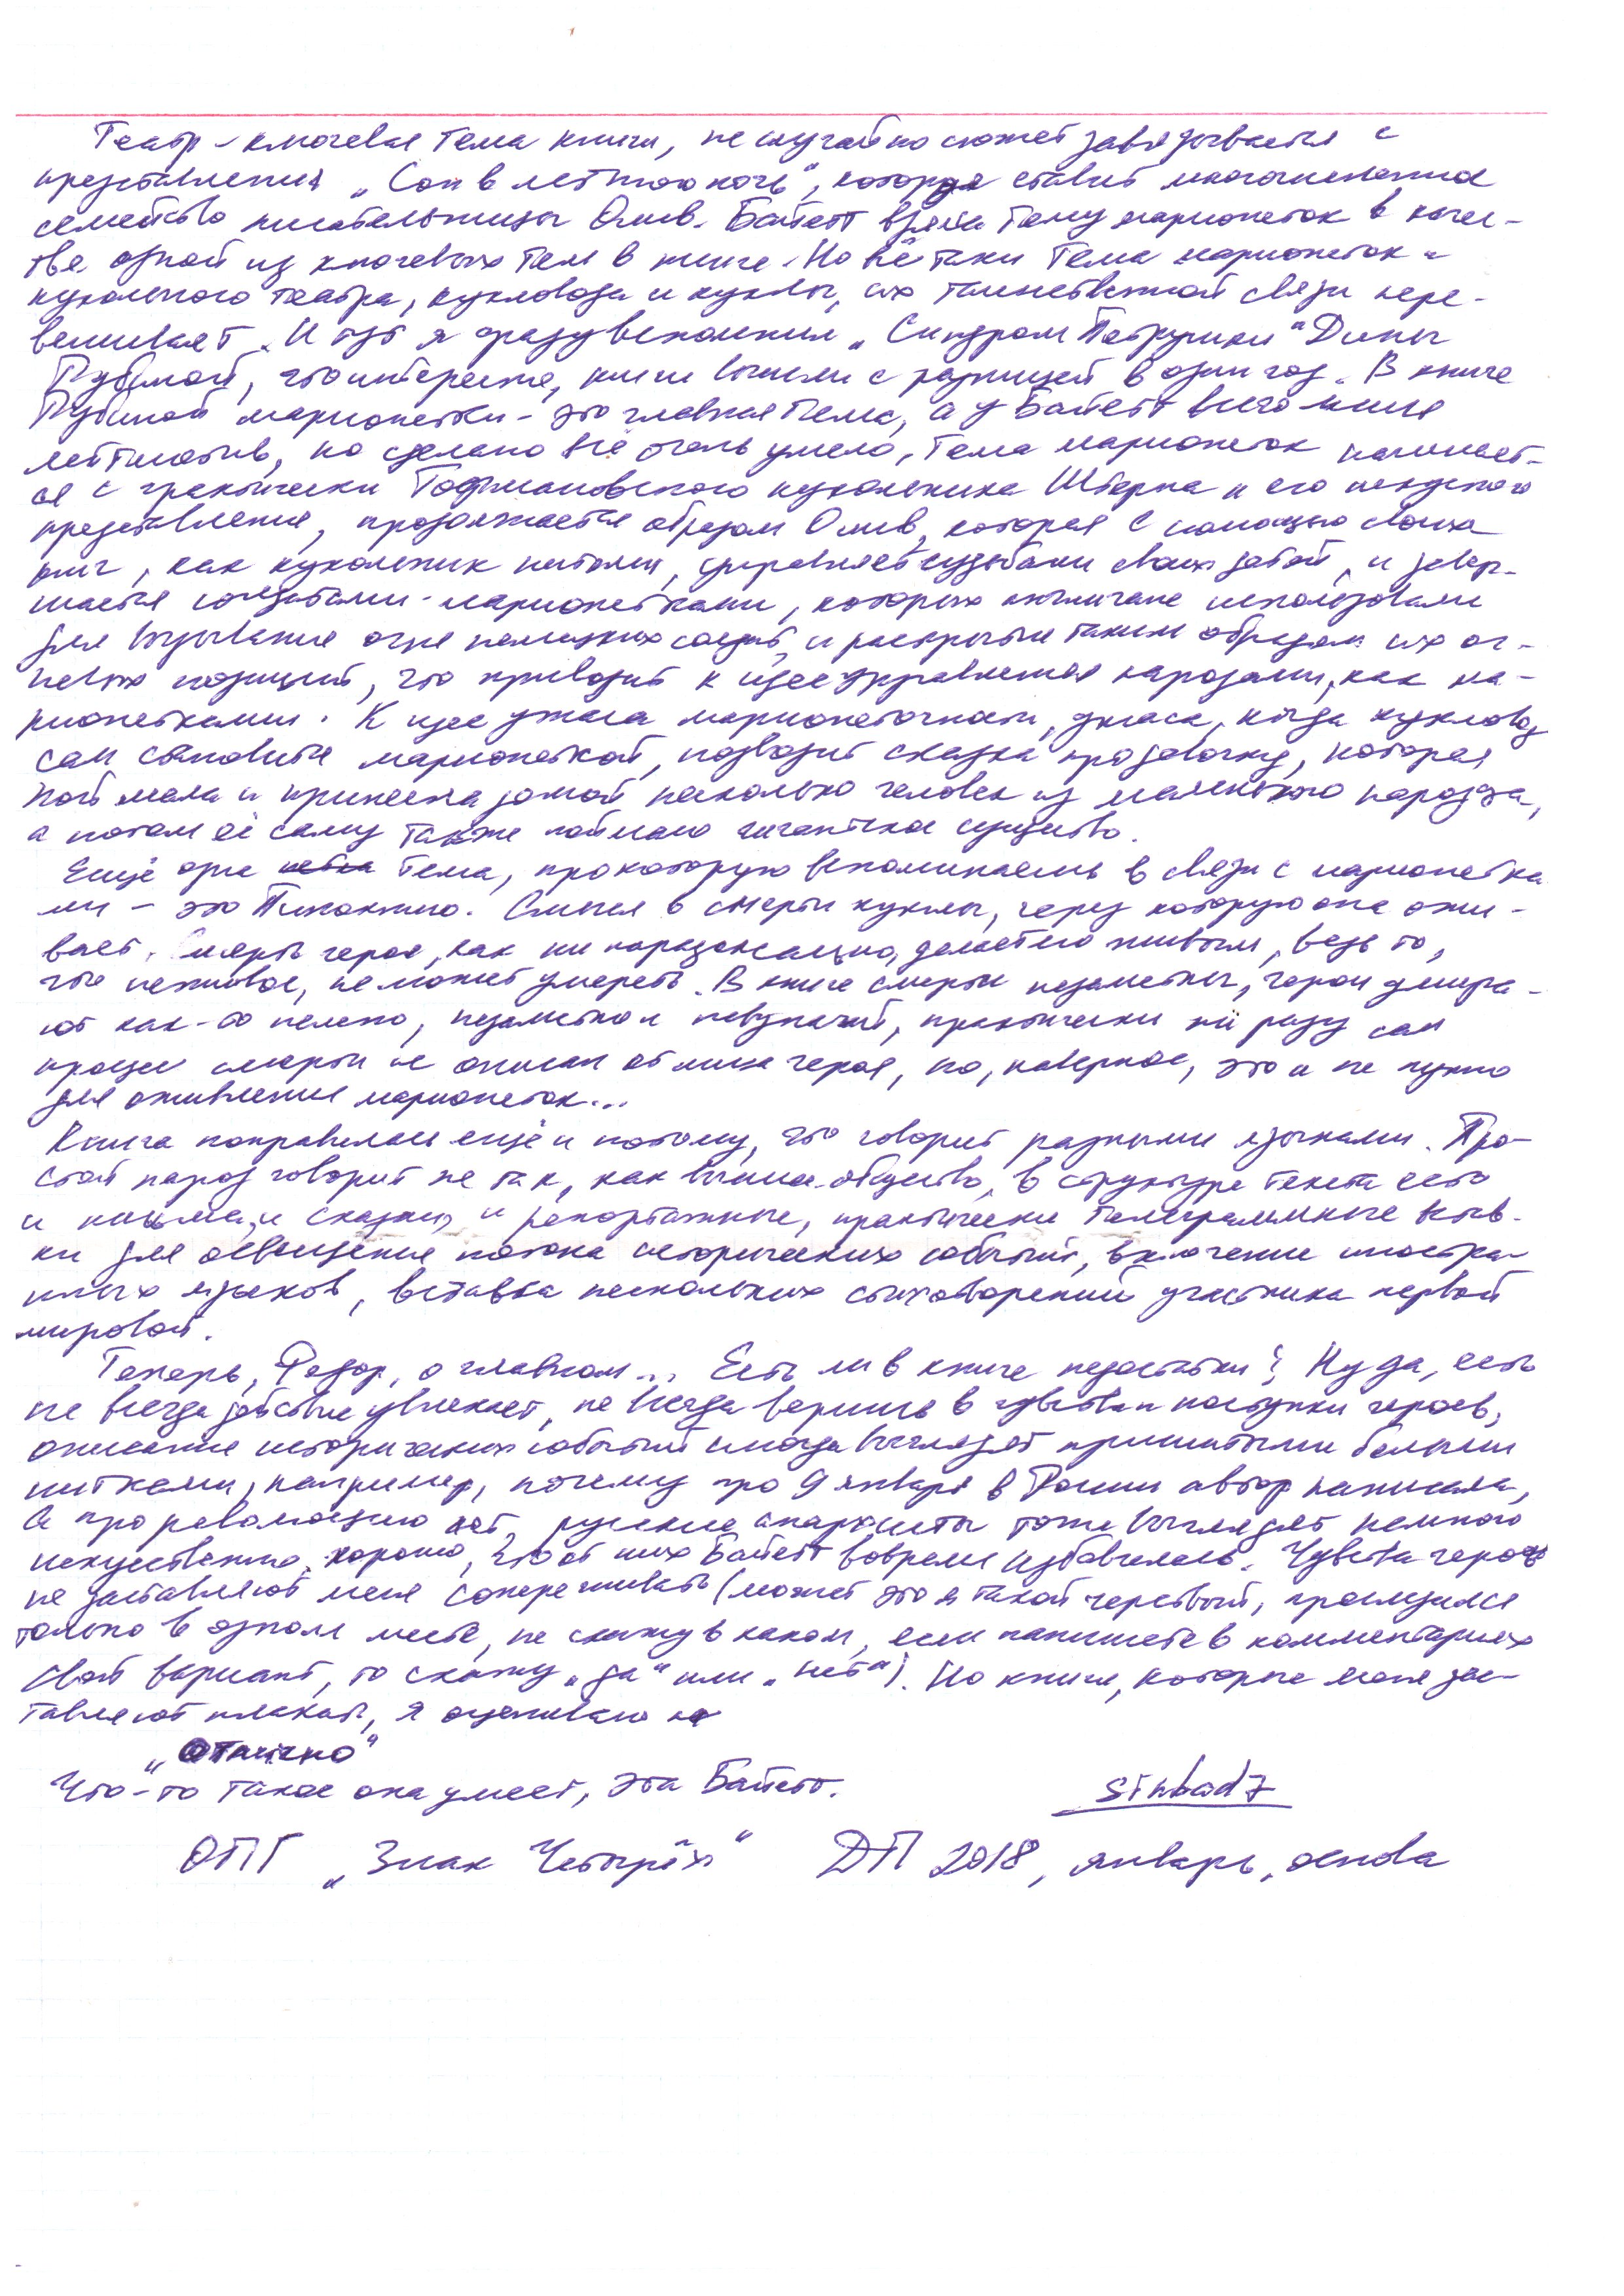 Театр - ключевая тема книги, не случайно сюжет завязывается с
представления „Сон в летнюю ночь“, которое ставит многочисленное
семейство писательницы Олив. Байетт взяла тему марионеток в качес-
тве одной из ключевых тем в книге. Но всё таки тема марионеток и
кукольного театра, кукловода и куклы, их таинственной связи пере-
вешивает. И тут я сразу вспомнил „Синдром Петрушки“ Дины
Рубиной, что интересно, книги вышли с разницей в один год. В книге
Рубиной марионетки - это главная тема, а у Байетт всего лишь
лейтмотив, но сделано всё очень умело, тема марионеток начинает-
ся с практически Гофмановского кукольника Штерна и его искусного
представления, продолжается образом Олив, которая с помощью своих
книг, как кукольник нитями, управляет судьбами своих детей, и завер-
шается солдатами-марионетками, которых англичане использовали
для вызывания огня немецких солдат и раскрытия таким образом их ог-
невых позиций, что приводит к идее управления народами, как ма-
рионетками. К идее ужаса марионеточности, ужаса, когда кукловод
сам становится марионеткой, подводит сказка про девочку, которая
поймала и принесла домой несколько человек из маленького народца,
а потом её саму также поймало гигантское существо.
Ещё одна тема, про которую вспоминаешь в связи с марионетка
ми - это Пиноккио. Смысл в смерти куклы, через которую она ожи-
вает. Смерть героя, как ни парадоксально, делает его живым, ведь то,
что неживое, не может умереть. В книге смерти незаметны, герои умира-
ют как-то нелепо, незаметно и невзначай, практически ни разу сам
процесс смерти не описан от лица героя, но, наверное, это и не нужно
для оживления марионеток...
Книга понравилась ещё и потому, что говорит разными языками. Про-
стой народ говорит не так, как высшее общество, в структуре текста есть
и письма, и сказки, и репортажные, практически телеграммные встав-
ки для освещения потока исторических событий, включение иностра-
нных языков, вставка нескольких стихотворений участника первой
мировой.
Теперь, Федор, о главном... Есть ли в книге недостатки? Ну да, есть
не всегда действие увлекает, не всегда веришь в чувства и поступки героев,
описание исторических событий иногда выглядят пришитыми белыми
нитками, например, почему про 9 января в России автор написала,
а про революцию нет, русские анархисты тоже выглядят немного
искусственно, хорошо, что от них Байетт вовремя избавилась. Чувства героев
не заставляют меня сопереживать (может это я такой черствый, прослезился
только в одном месте, не скажу в каком, если напишете в комментариях
свой вариант, то скажу „да“ или „нет“). Но книги, которые меня зас-
тавляют плакать, я оцениваю на
„Отлично“
Что-то такое она умеет, эта Байетт.
sinbad7
ОПГ „Знак Четырёх“ ДП 2018, январь, основа